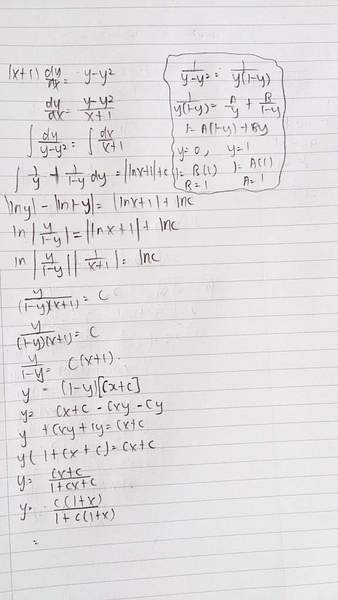 (x+1) dy/dx = y-y²
dy/dx = y-y²/x+1
∫ dy/y-y² = ∫ dx/x+1
∫ 1/y + 1/1-y dy = |lnx+1|+c
|lny| - ln|1-y| = |lnx+1| + lnc
ln |y/1-y| = |lnx+1| + lnc
ln |y/1-y| |1/x+1| = lnc
y/(1-y)(x+1) = C
y/(1-y)(x+1) = C
y/1-y = C(x+1).
y = (1-y)[Cx+C]
y = Cx+C - Cxy - Cy
y + Cxy + Cy = Cx+C
y( 1+Cx+C) = Cx+C
y = Cx+C/1+Cx+C
y = C(1+x)/1+C(1+x)
=
1/y-y² = 1/y(1-y)
1/y(1-y) = A/y + B/1-y
1 = A(1-y)+By
y=0, y=1
1=B(1) 1=A(1)
B=1 A=1